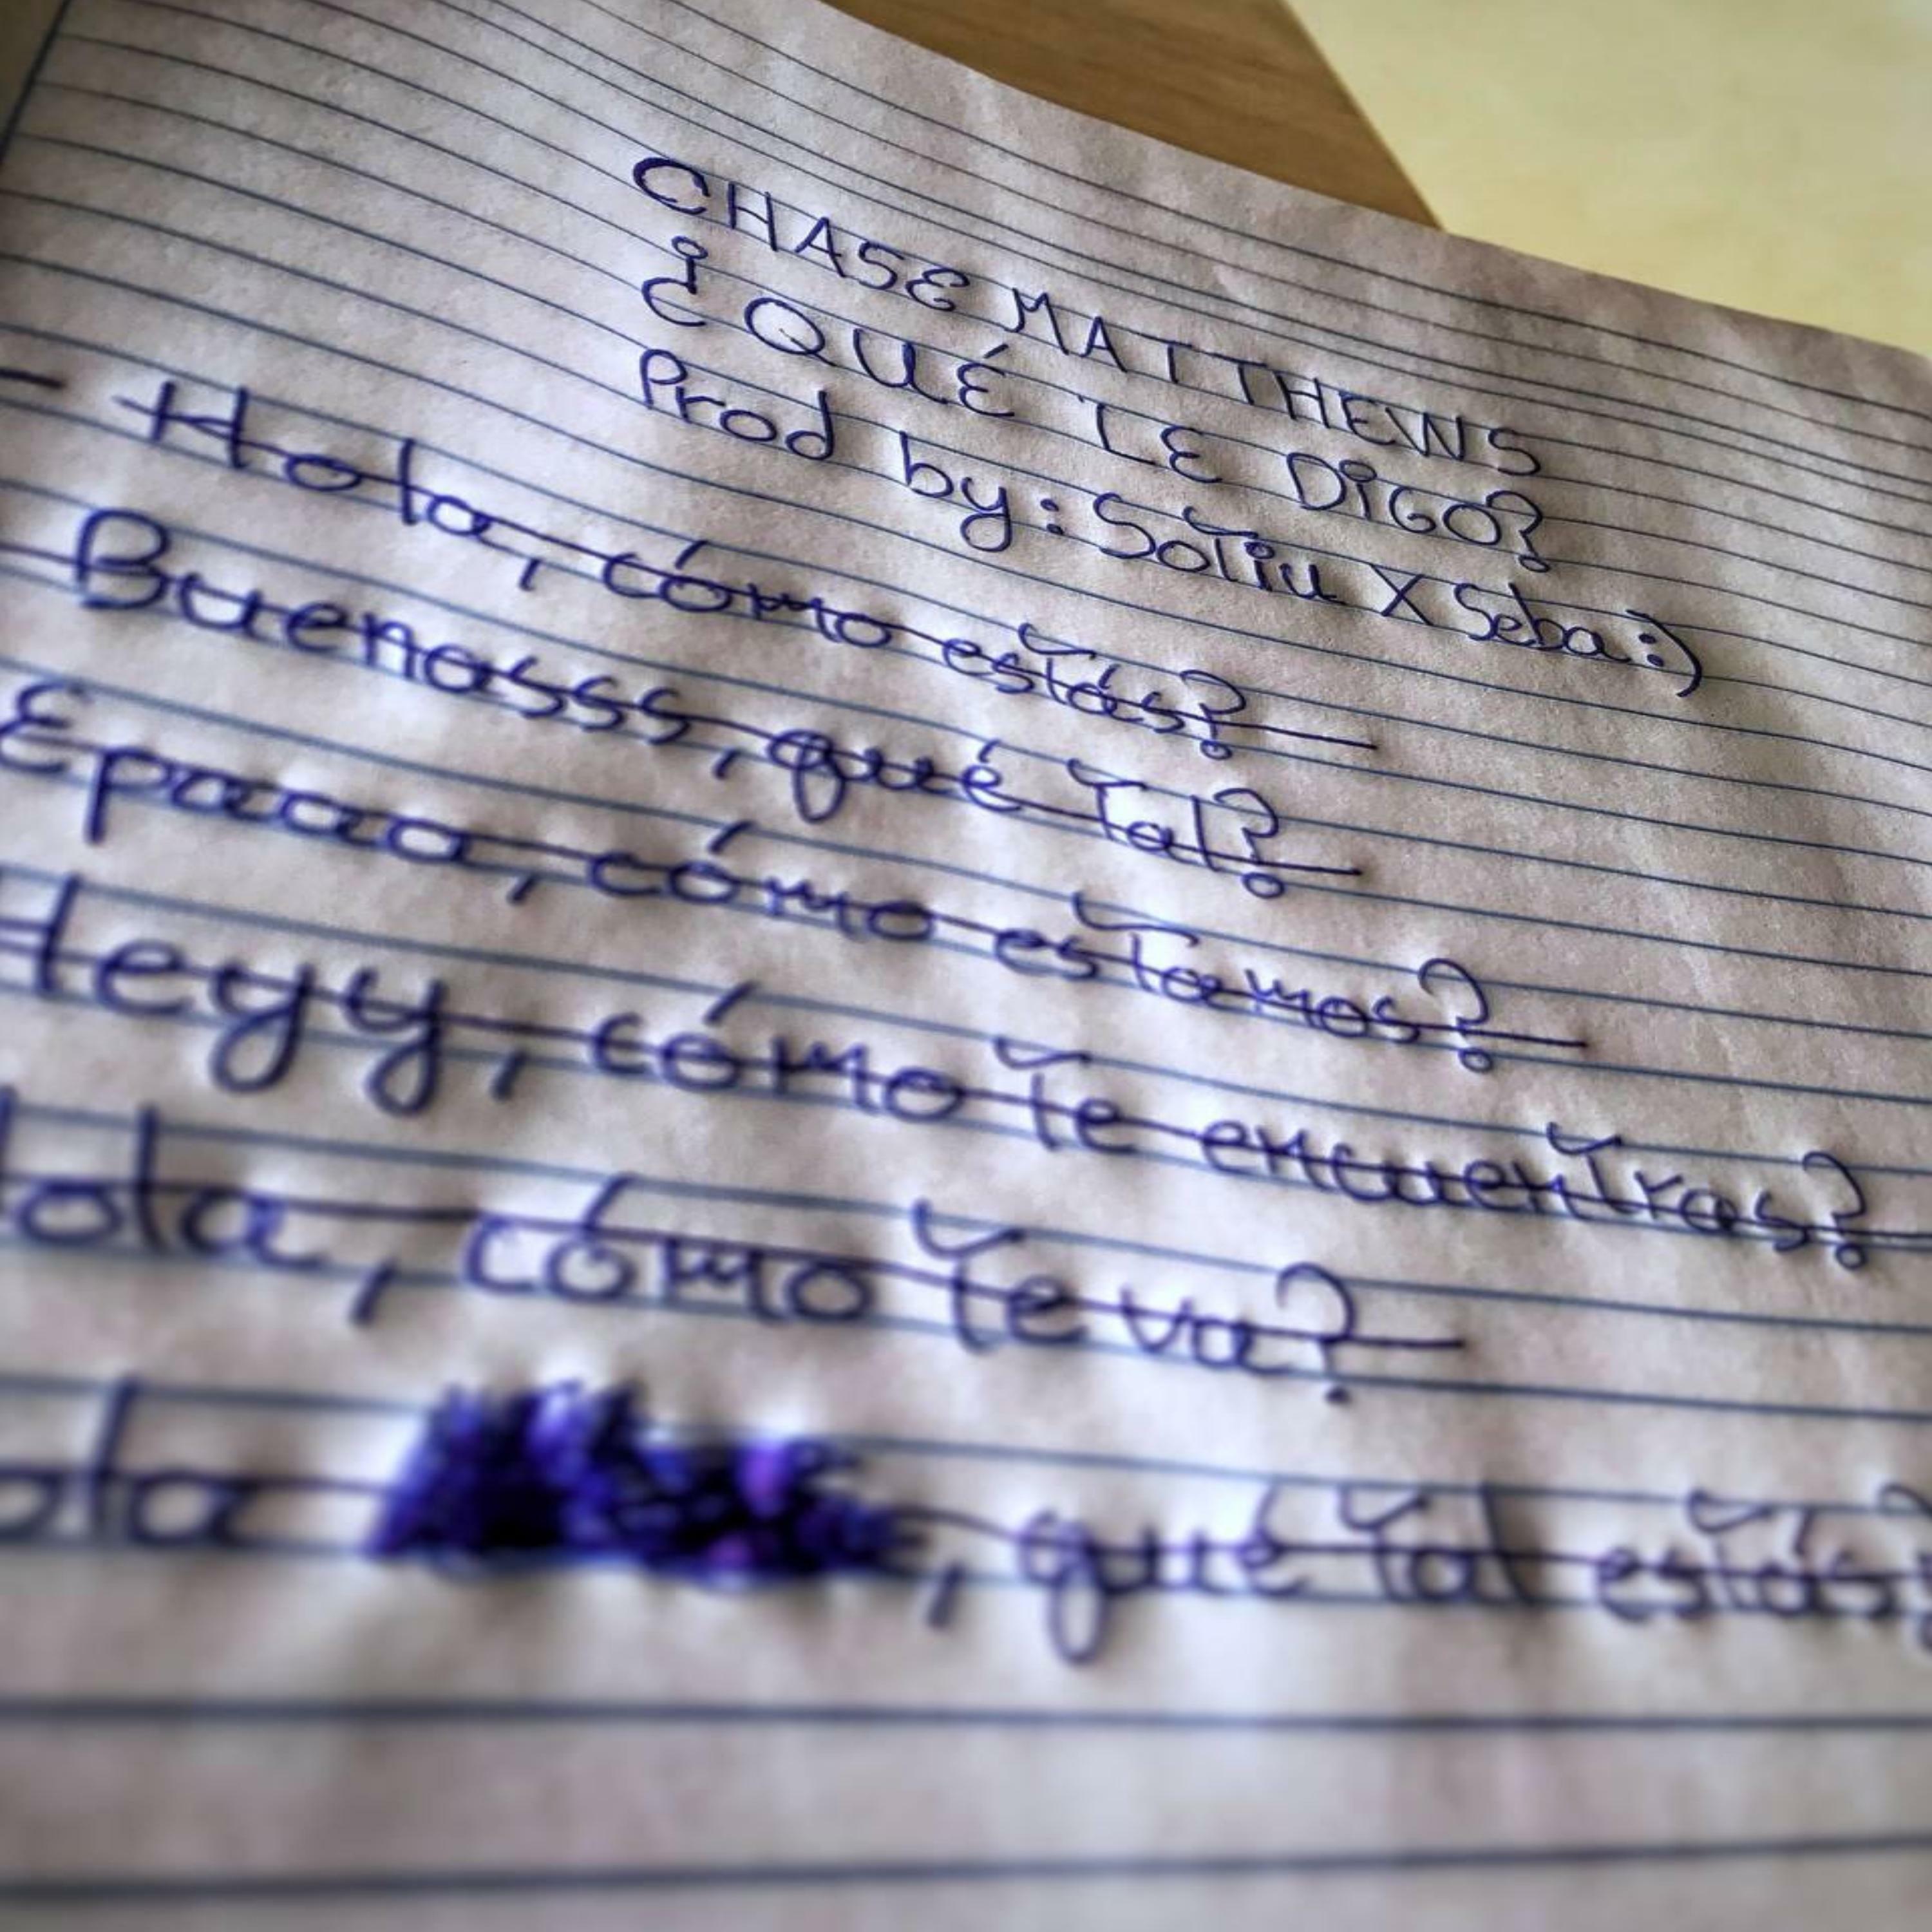 CHASE MATTHEWS
¿QUÉ LE DIGO?
Prod by: Sotiu X Seba :)
- Hola, cómo estás?
Buenasss, qué tal?
Epaaa, cómo estamos?
Heyy, cómo te encuentras?
Hola, cómo te va?
Hola , qué tal estás?